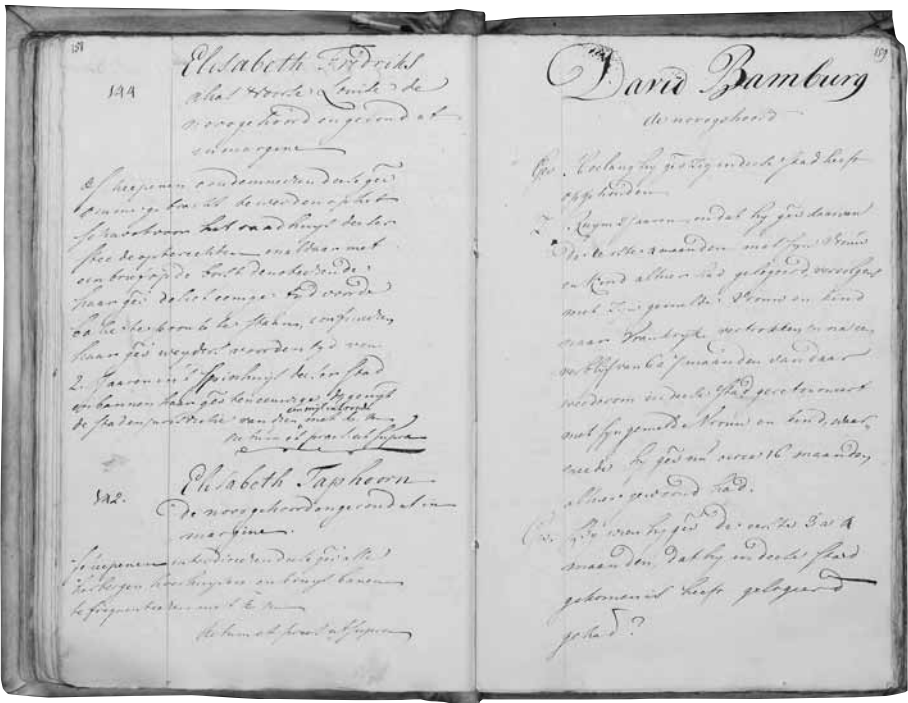 158
144
Elisabeth Fredriks
alias Vorte Louise de
novo gehoord en gerond at
in margine
Scheepenen condemneeren deese gev
omme gebracht te werden op het
schavot voor het raadhuys deeser
stee de gebrechte en aldaar met
een brief op de borst
haar gev eenige tyd voor de
te staan, confineeren
haar gev weyders voor den tyd van
2. Jaaren in 't Spinhuys deeser stad
en bannen haar gev ten eeuwige dage uyt
de stad en van dien met de
Actum et praes ut supra
142.
Elisabeth Taphoorn
de novo gehoord en gerond at in
margine.
Scheepenen interdiceeren deese gev alle
herbergen, en
te frequenteeren
Actum et praes ut supra
159
David Bamburg
de novo gehoord
Hoe lang hy gev zig in deese stad heeft
opgehouden
Ruym 2 Jaaren, en dat hy gev daarvan
de eerste maanden met syn Vrouw
en kind alhier had gelogeerd, vervolgens
met zyn gemelde Vrouw en kind
naar Vrankryk vertrokken en na een
verblyf van 6 a 7 maanden van daar
wederom in deese stad geretourneert
met syn gemelde Vrouw en kind, waar
meede hy gev nu circa 16 maanden,
alhier gewoond had.
By wien hy gev de eerste 3 a 4
maanden, dat hy in deese stad
gekomen is heeft gelogeerd
gehad?